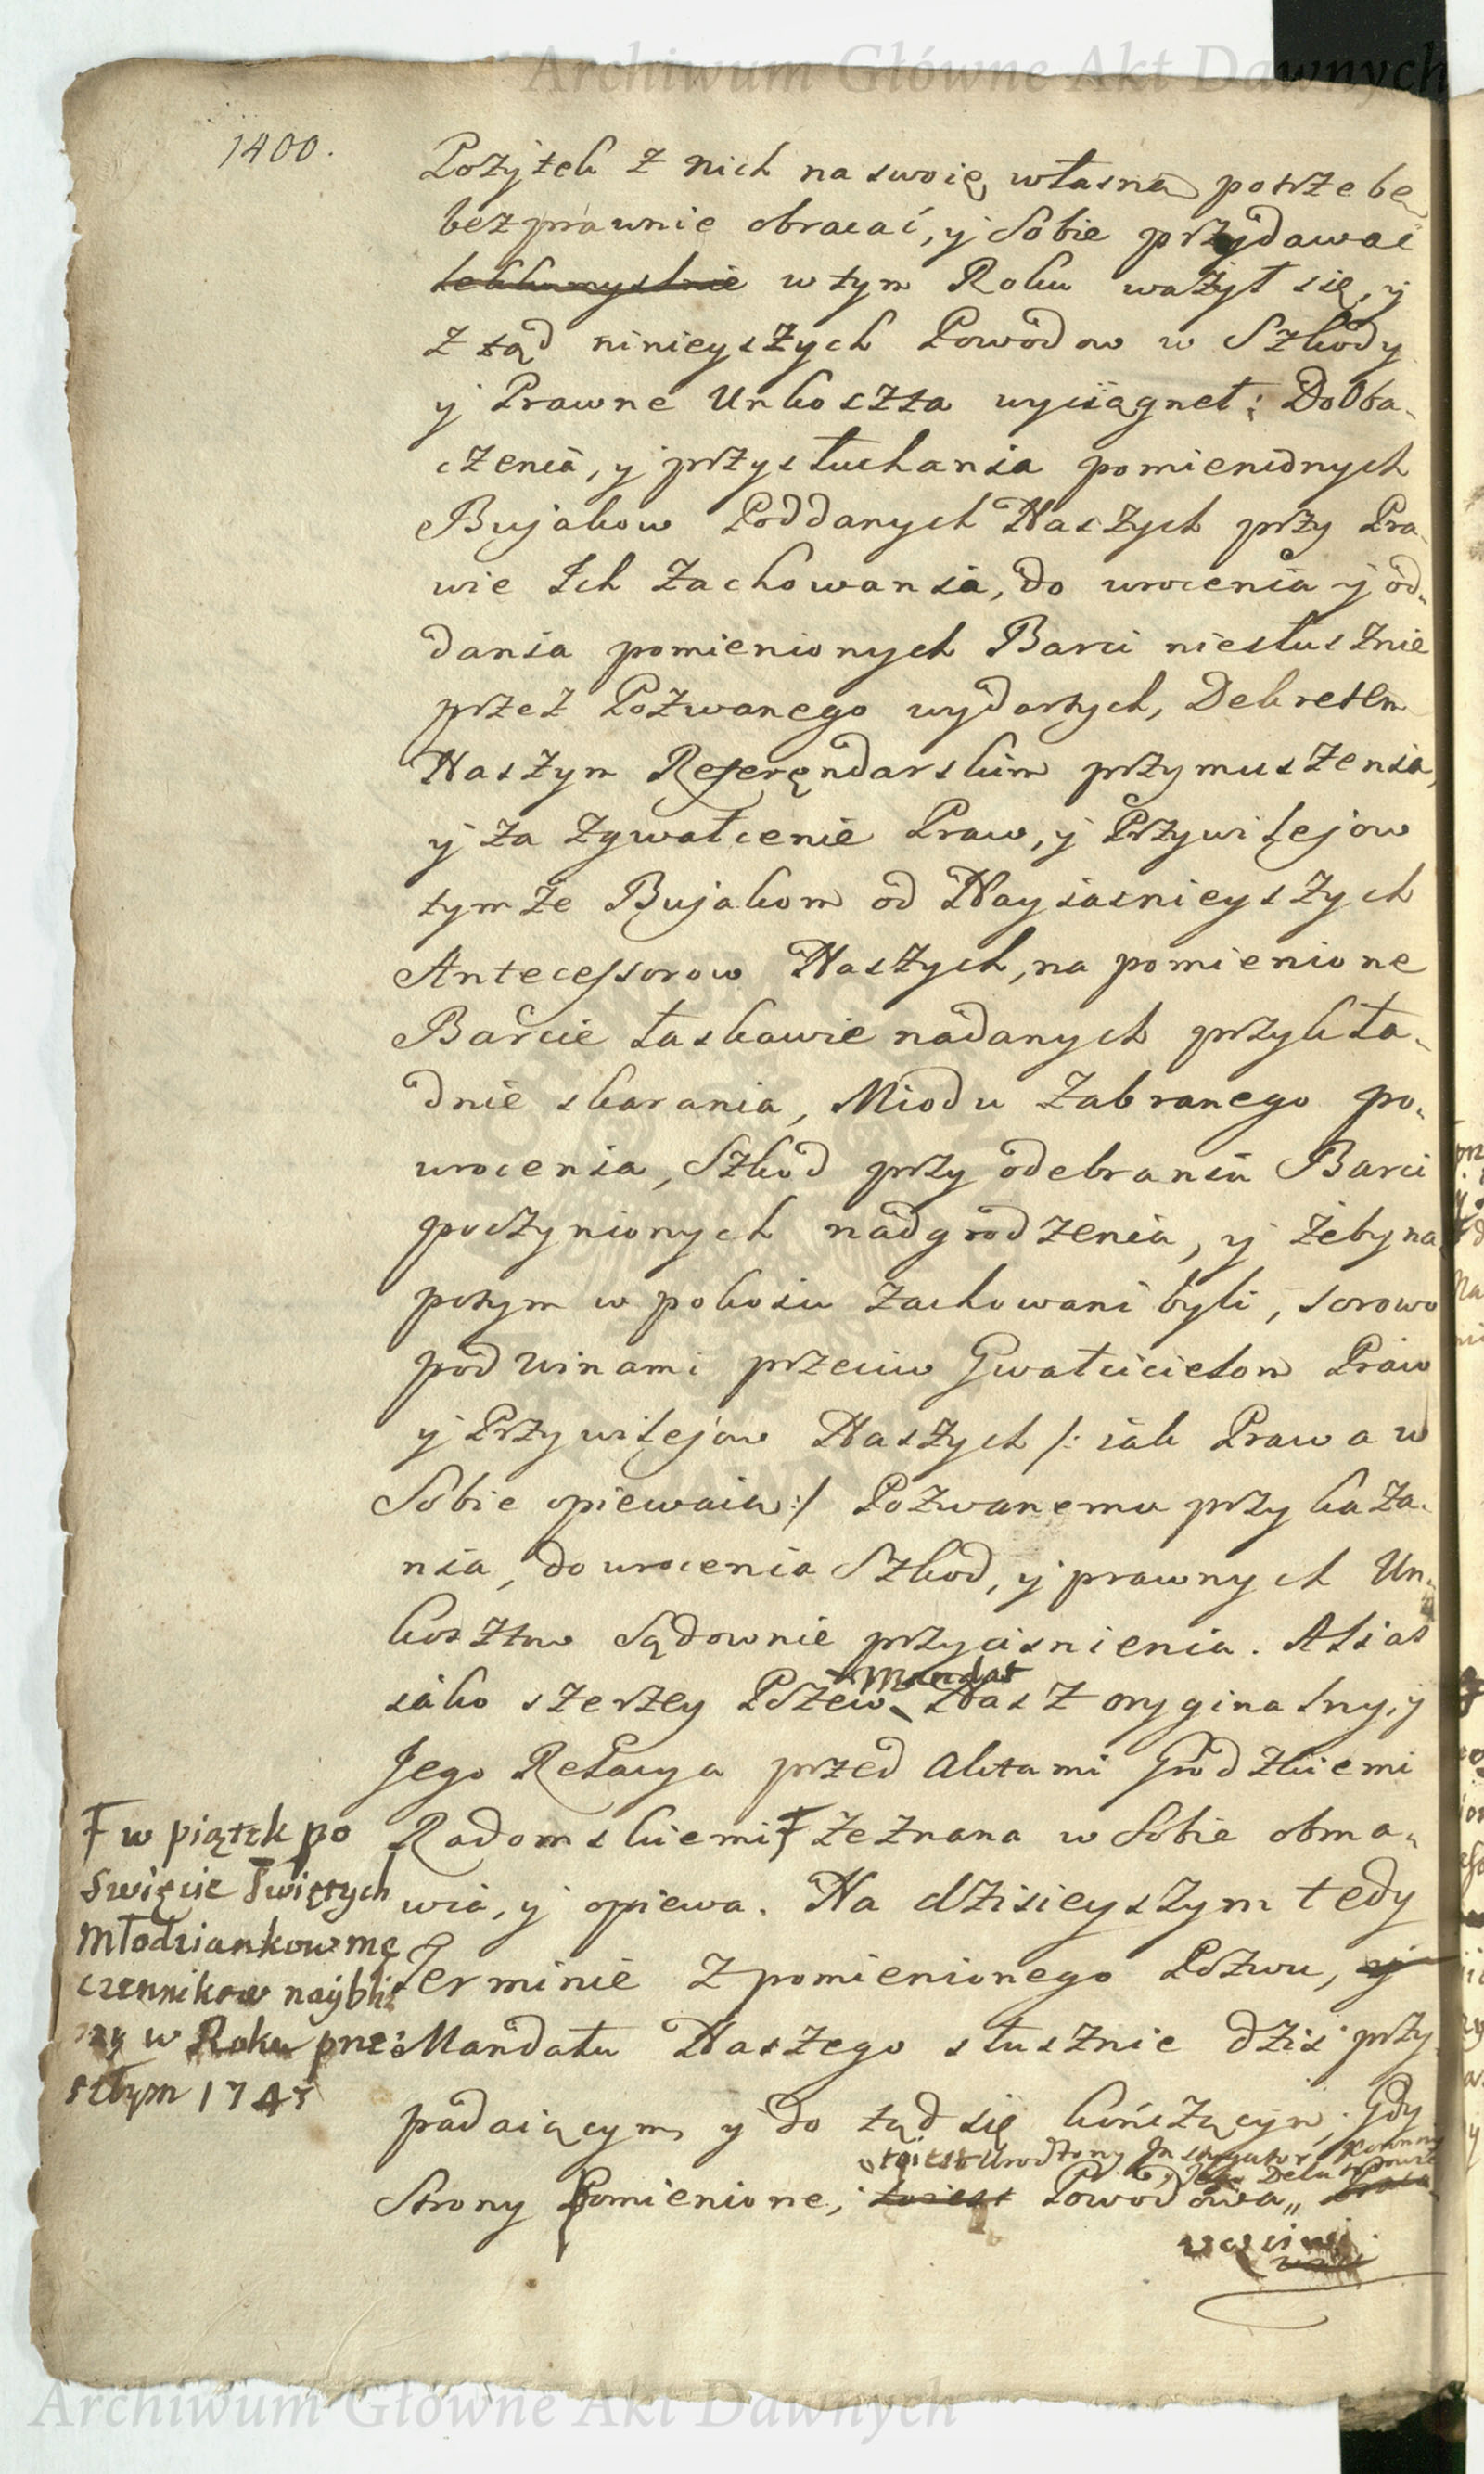 Archiwum Główne Akt Dawnych
1400.
Pożytek z nich na swoię własną potrzebę
bezprawnie obracać, y Sobie przydawać
lekkomyslnie w tym Roku ważył się, y
z tąd ninieyszych Powodow w Szkody
y Prawne Unkoszta wyciągneł; Do Oba-
czenia, y przysłuchania pomienionych
Bujakow Poddanych Naszych przy Pra-
wie Ich zachowania, do wrocenia y od-
dania pomienionych Barci niesłusznie
przez Pozwanego wydartych, Dekretem
Naszym Referęndarskim przymuszenia,
y za zgwałcenie Praw, y Przywilejow
tymże Bujakom od Nayiasnieyszych
Antecessorow Naszych, na pomienione
Barcie łaskawie nadanych przykła-
dnie skarania, Miodu zabranego po-
wrocenia, Szkod przy odebraniu Barci
poczynionych nadgrodzenia, y żeby na
potym w pokoiu zachowani byli, sorowo
pod winami przeciw Gwałcicielom Praw
y Przywilejow Naszych /: iak Prawa w
Sobie opiewaią :/ Pozwanemu przykaza-
nia, do wrocenia Szkod, y prawnych Un-
kosztow Sądownie przycisnienia. Alias
Mandat
iako szerzey Pozew Nasz oryginalny, y
Jego Relacya przed Aktami Grodzkiemi
Radomskiemi Ŧ zeznana w Sobie obma-
wia, y opiewa. Na dzisieyszym tedy
Terminie z pomienionego Pozwu, y
Mandatu Naszego słusznie dziś przy
padaiącym y do tąd się kończącym, Gdy
toiest Urodzony Instygator Koronny
Jego Delator
Strony Pomienione, toiest Powodowa,,
Ŧ w piątek po
Swięcie Swiętych
Młodziankow mę
czennikow naybliż
szy w Roku prze:
szłym 1745
Archiwum Główne Akt Dawnych